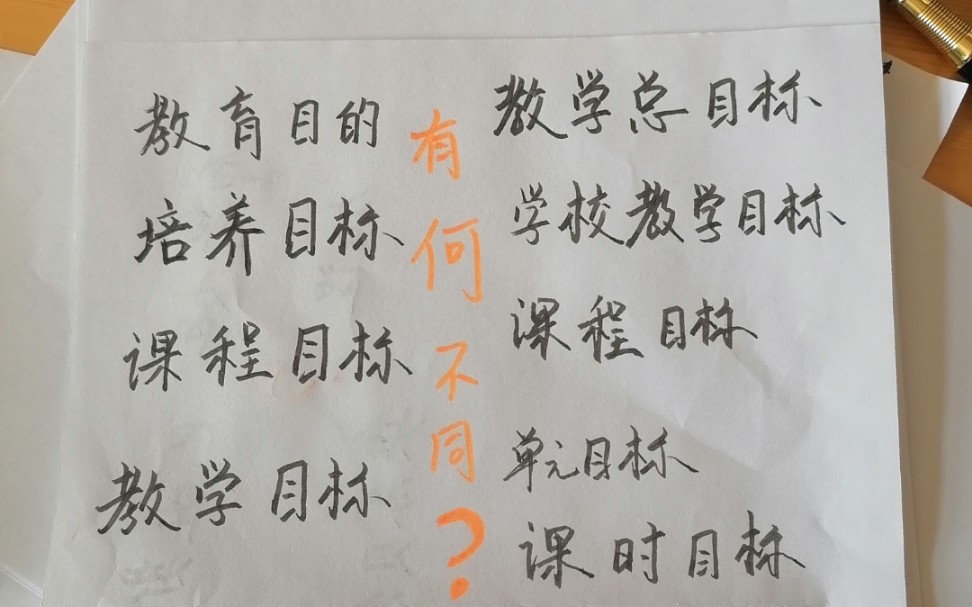 教育目的
培养目标
课程目标
教学目标
有何不同？
教学总目标
学校教学目标
课程目标
单元目标
课时目标